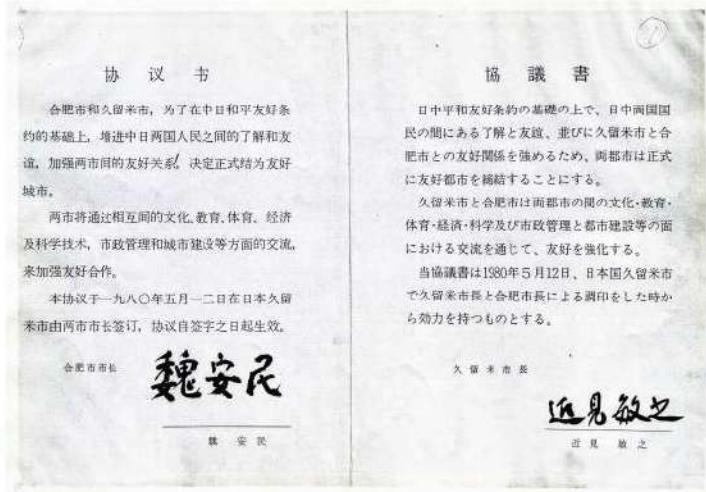 协 议 书
合肥市和久留米市，为了在中日和平友好条
约的基础上，增进中日两国人民之间的了解和友
谊，加强两市间的友好关系，决定正式结为友好
城市。
两市将通过相互间的文化、教育、体育、经济
及科学技术，市政管理和城市建设等方面的交流，
来加强友好合作。
本协议于一九八〇年五月一二日在日本久留
米市由两市市长签订，协议自签字之日起生效。
合肥市市长
魏安民
魏 安 民
協 議 書
日中平和友好条約の基礎の上で、日中両国国
民の間にある了解と友誼、並びに久留米市と合
肥市との友好関係を強めるため、両都市は正式
に友好都市を締結することにする。
久留米市と合肥市は両都市の間の文化・教育・
体育・経済・科学及び市政管理と都市建設等の面
における交流を通じて、友好を強化する。
当協議書は1980年5月12日、日本国久留米市
で久留米市長と合肥市長による調印をした時か
ら効力を持つものとする。
久 留 米 市 長
近見敏之
近 見 敏 之